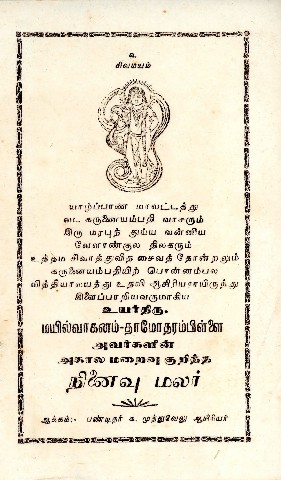 உ
சிவமயம்
யாழ்ப்பாண மாவட்டத்து
வட கருணையம்பதி வாசரும்
இரு மரபுந் துய்ய வன்னிய
வேளாண்குல திலகரும்
உத்தம சிவாத்துவித சைவத் தோன்றலும்
கருணையம்பதியிற் பொன்னம்பல
வித்தியாலயத்து உதவி ஆசிரியராயிருந்து
இளைப்பாறியவருமாகிய
உயர்திரு.
மயில்வாகனம்-தாமோதரம்பிள்ளை
அவர்களின்
அகால மறைவு குறித்த
நினைவு மலர்
ஆக்கம்:- பண்டிதர் க. முத்துவேலு ஆசிரியர்